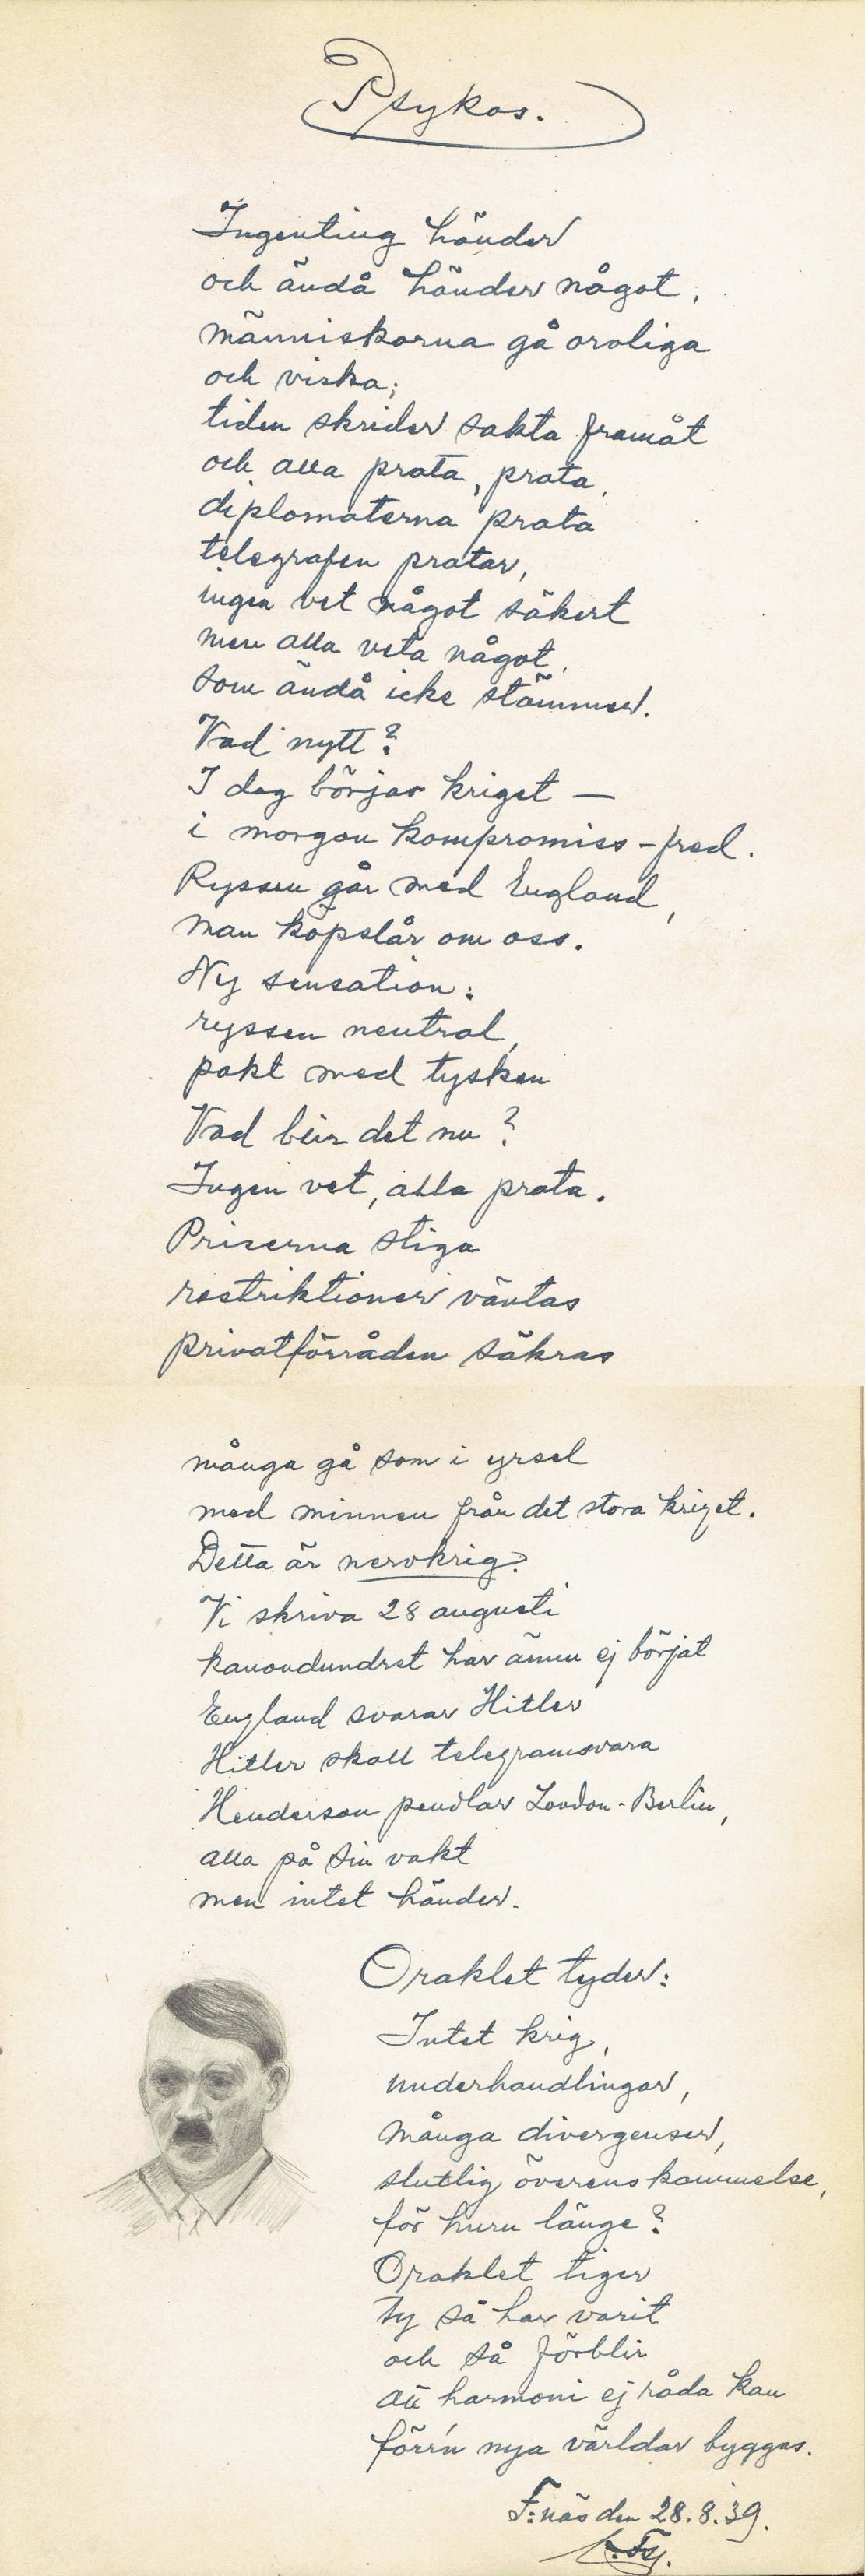 Psykos.
Ingenting händer
och ändå händer något,
människorna gå oroliga
och viska;
tiden skrider sakta framåt
och alla prata, prata,
diplomaterna prata
telegrafen pratar,
ingen vet något säkert
men alla veta något,
som ändå icke stämmer.
Vad nytt?
I dag börjar kriget —
i morgon kompromiss-fred.
Ryssen går med England,
man köpslår om oss.
Ny sensation:
ryssen neutral,
pakt med tysken
Vad blir det nu?
Ingen vet, alla prata.
Priserna stiga
restriktioner väntas
privatförråden säkras
många gå som i yrsel
med minnen från det stora kriget.
Detta är nervkrig.
Vi skriva 28 augusti
kanondundret har ännu ej börjat
England svarar Hitler
Hitler skall telegramsvara
Henderson pendlar London-Berlin,
alla på sin vakt
men intet händer.
Oraklet tyder:
Intet krig,
underhandlingar,
många divergenser,
slutlig överenskommelse,
för huru länge?
Oraklet tiger
ty så har varit
och så förblir
att harmoni ej råda kan
förr'n nya världar byggas.
F:näs den 28.8.39.